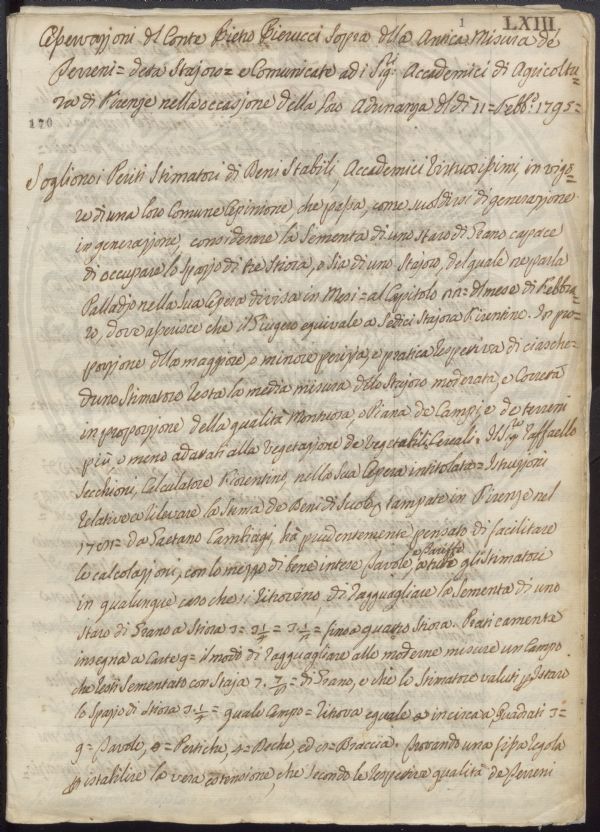 1 LXIII
Osservazioni del Conte Pietro Pierucci Sopra della Antica Misura de
Terreni= detta Stajoro= e Comunicate ad i Sig.ri Accademici di Agricoltu=
ra di Firenze nella occasione della loro Adunanza del dì 11= Febb.o 1795=
170
Sogliono i Periti Stimatori di Beni Stabili, Accademici Virtuosissimi, in vigo=
re di una loro Comune Opinione, che passa, come suol dirsi di generazzione
in generazzione, considerare la Sementa di uno Staro di Grano capace
di occupare lo spazio di tre Stiora, o sia di uno Stajoro, del quale ne parla
Palladjo nella sua Opera divisa in Mesi= al Capitolo del mese di Febbra=
ro, dove asperisce che il Giugero equivale a Sedici Stajora Fiorentine. In pro=
porzione della maggiore, o minore perizia, e pratica respettiva di ciasche=
duno Stimatore resta la media misura dello Stajoro moderata, e Corretta
in proporzione della qualità Montuosa, o Piana de Campi, e de terreni
più, o meno adattati alla Vegetazione de Vegetabili Cereali. Il Sig.re Raffaello
Secchioni, Calculatore Fiorentino, nella sua Opera intitolata= Istruzzioni
relative a rilevare la stima de Beni di Suolo, stampate in Firenze nel
da Gaetano Cambiagi, ha prudentemente pensato di facilitare
le calcolazioni, con lo mezzo di bene intese Tavole, e Tariffe a tutti gli Stimatori
in qualunque caso che si ritrovino, di ragguagliare la Sementa di uno
staro di Grano a Stiora 3= 3 1/4= 3 1/2= fino a quattro Stiora. Praticamente
insegna a Carte 9= il modo di ragguagliare alle moderne misure un Campo
che resti Sementato con Staja 7. di Grano, e che lo Stimatore valuti p. Istaro
lo spazio di Stiora 3 1/4= quale Campo= ritrova eguale incirca a Quadrati 3=
9= Tavole, Pertiche, 4= Deche, ed Braccia. Trovando una fissa regola
p. istabilire la vera estensione, che secondo le respettive qualità de Terreni